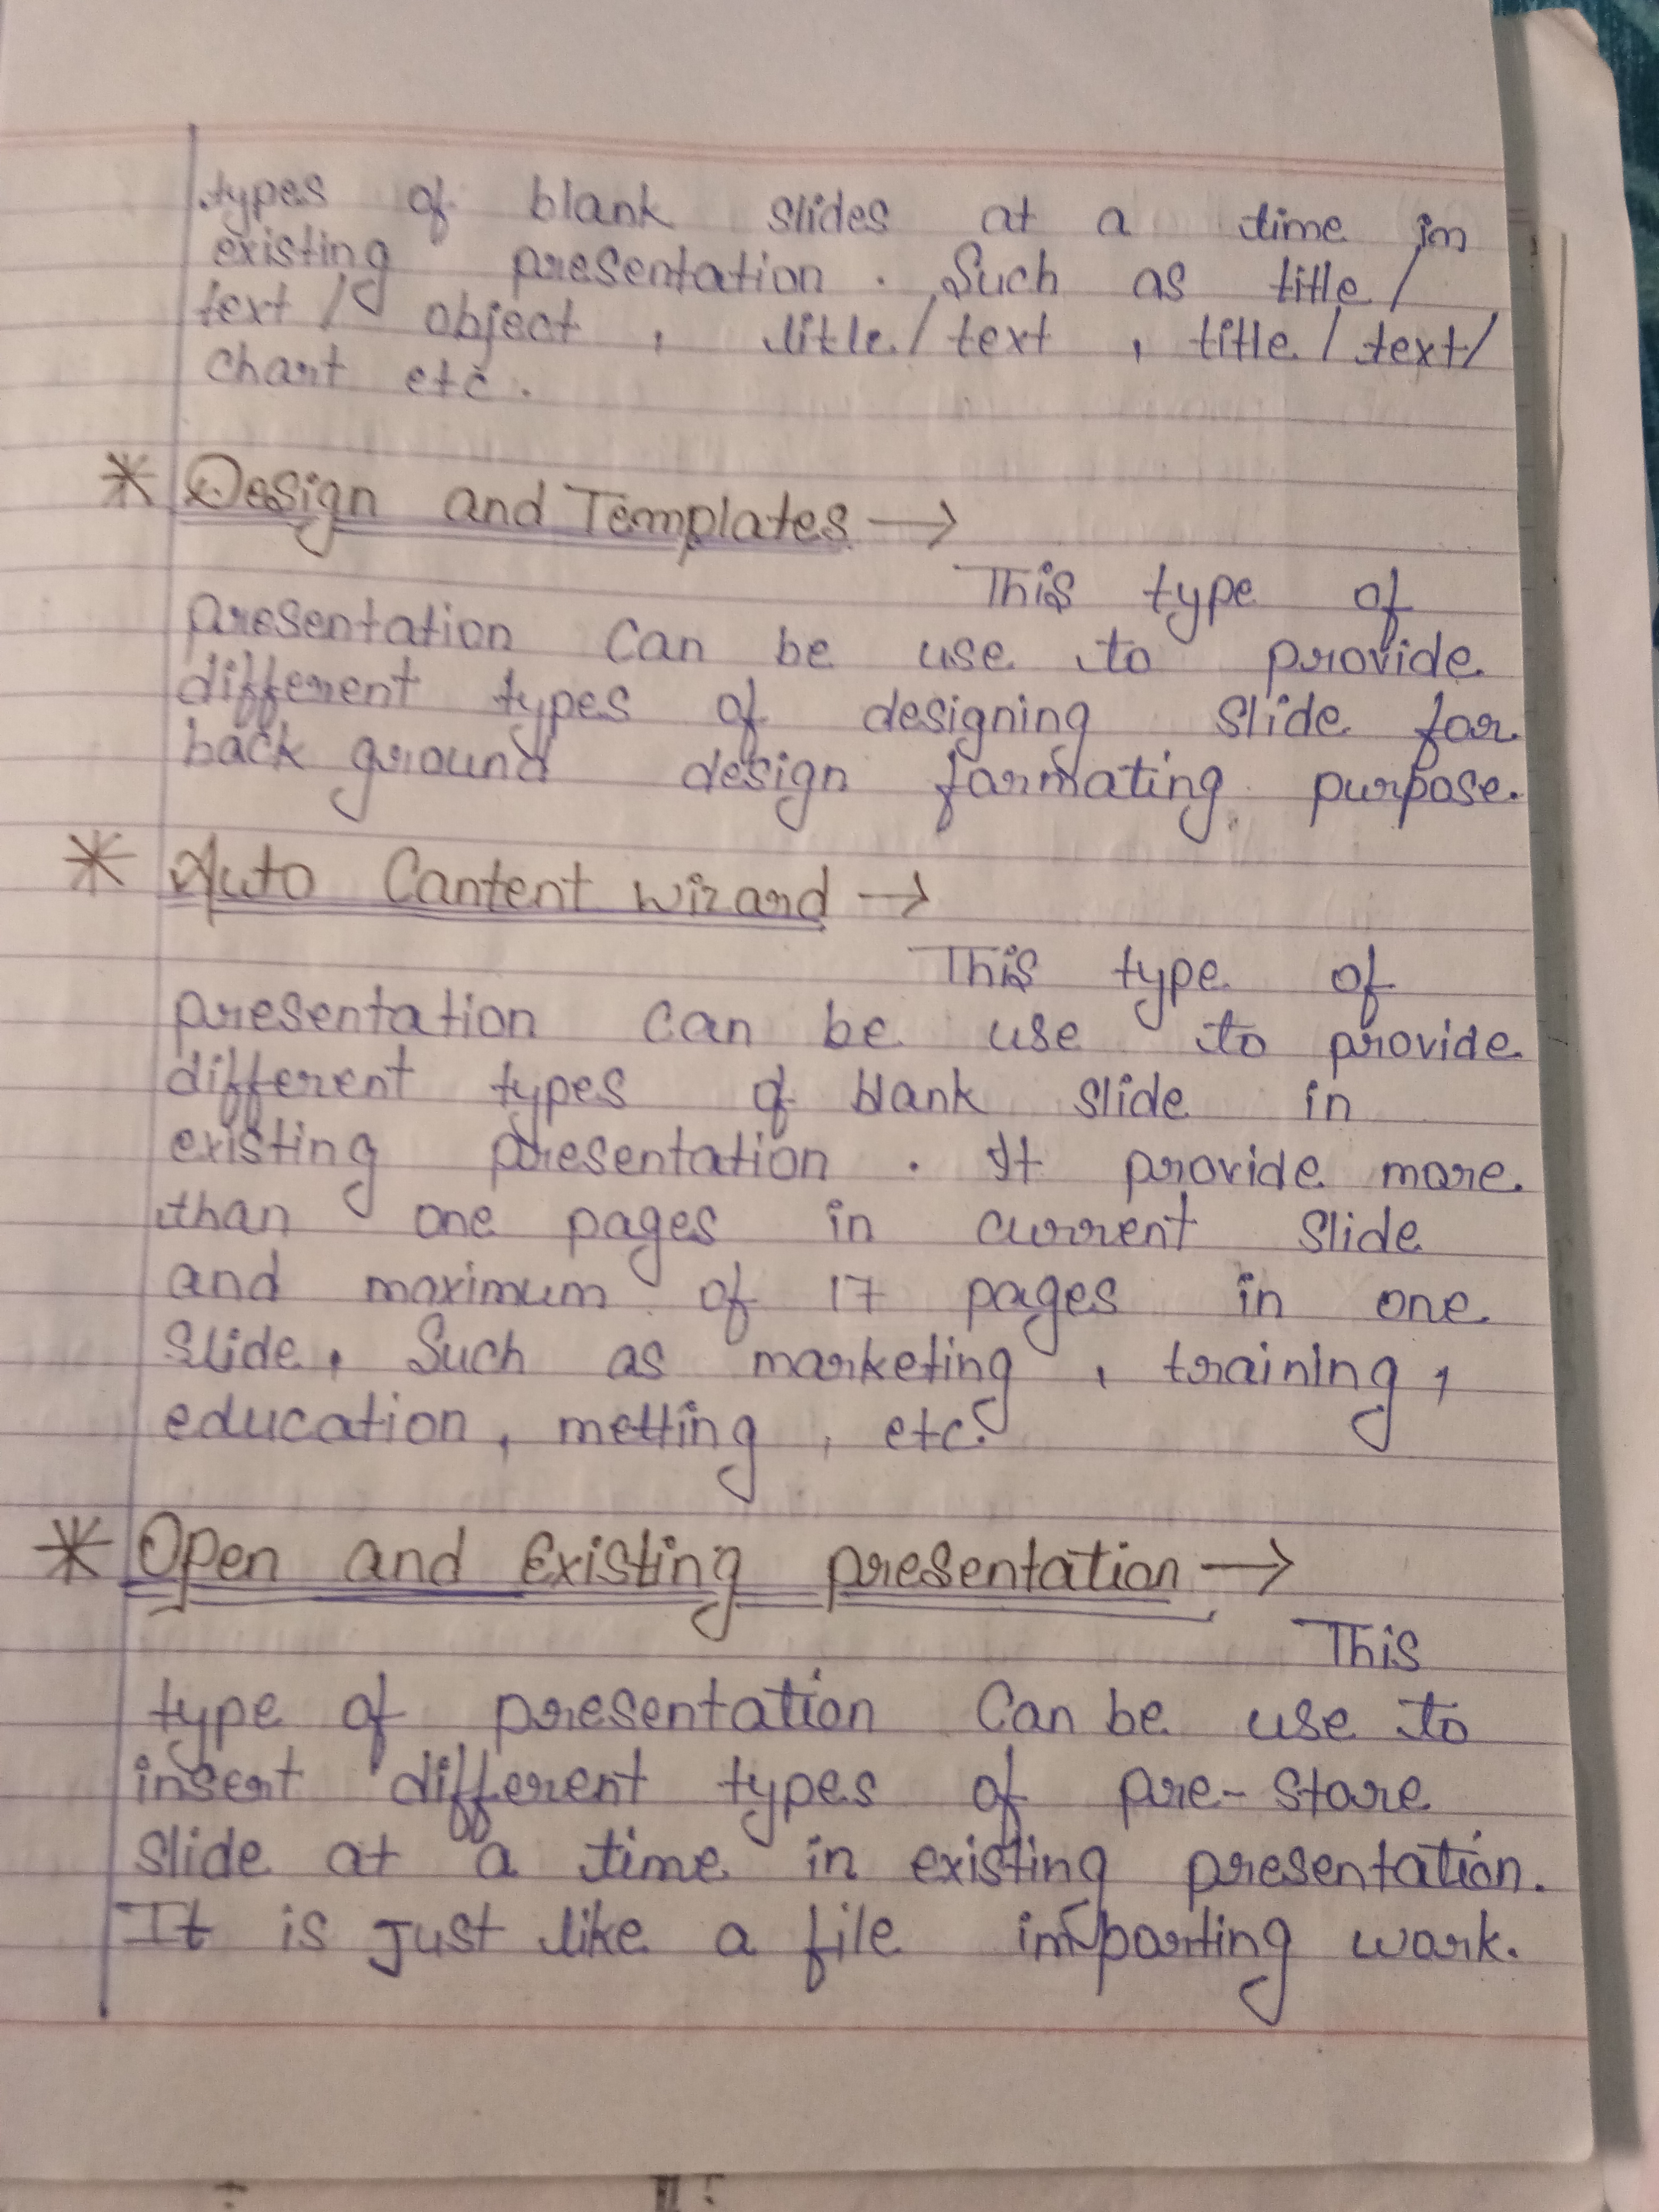 types of blank slides at a time in
existing presentation. Such as title/
text/ object, title/text, title/text/
chart etc.
* Design and Templates →
This type of
presentation can be use to provide
different types of designing slide for
back ground design formating purpose.
* Auto Content wizard →
This type of
presentation can be use to provide
different types of blank slide in
existing presentation. It provide more
than one pages in current slide
and maximum of 17 pages in one
slide, Such as marketing, training,
education, metting, etc.
* Open and Existing presentation →
This
type of presentation Can be use to
insert different types of pre-store
slide at a time in existing presentation.
It is just like a file importing work.